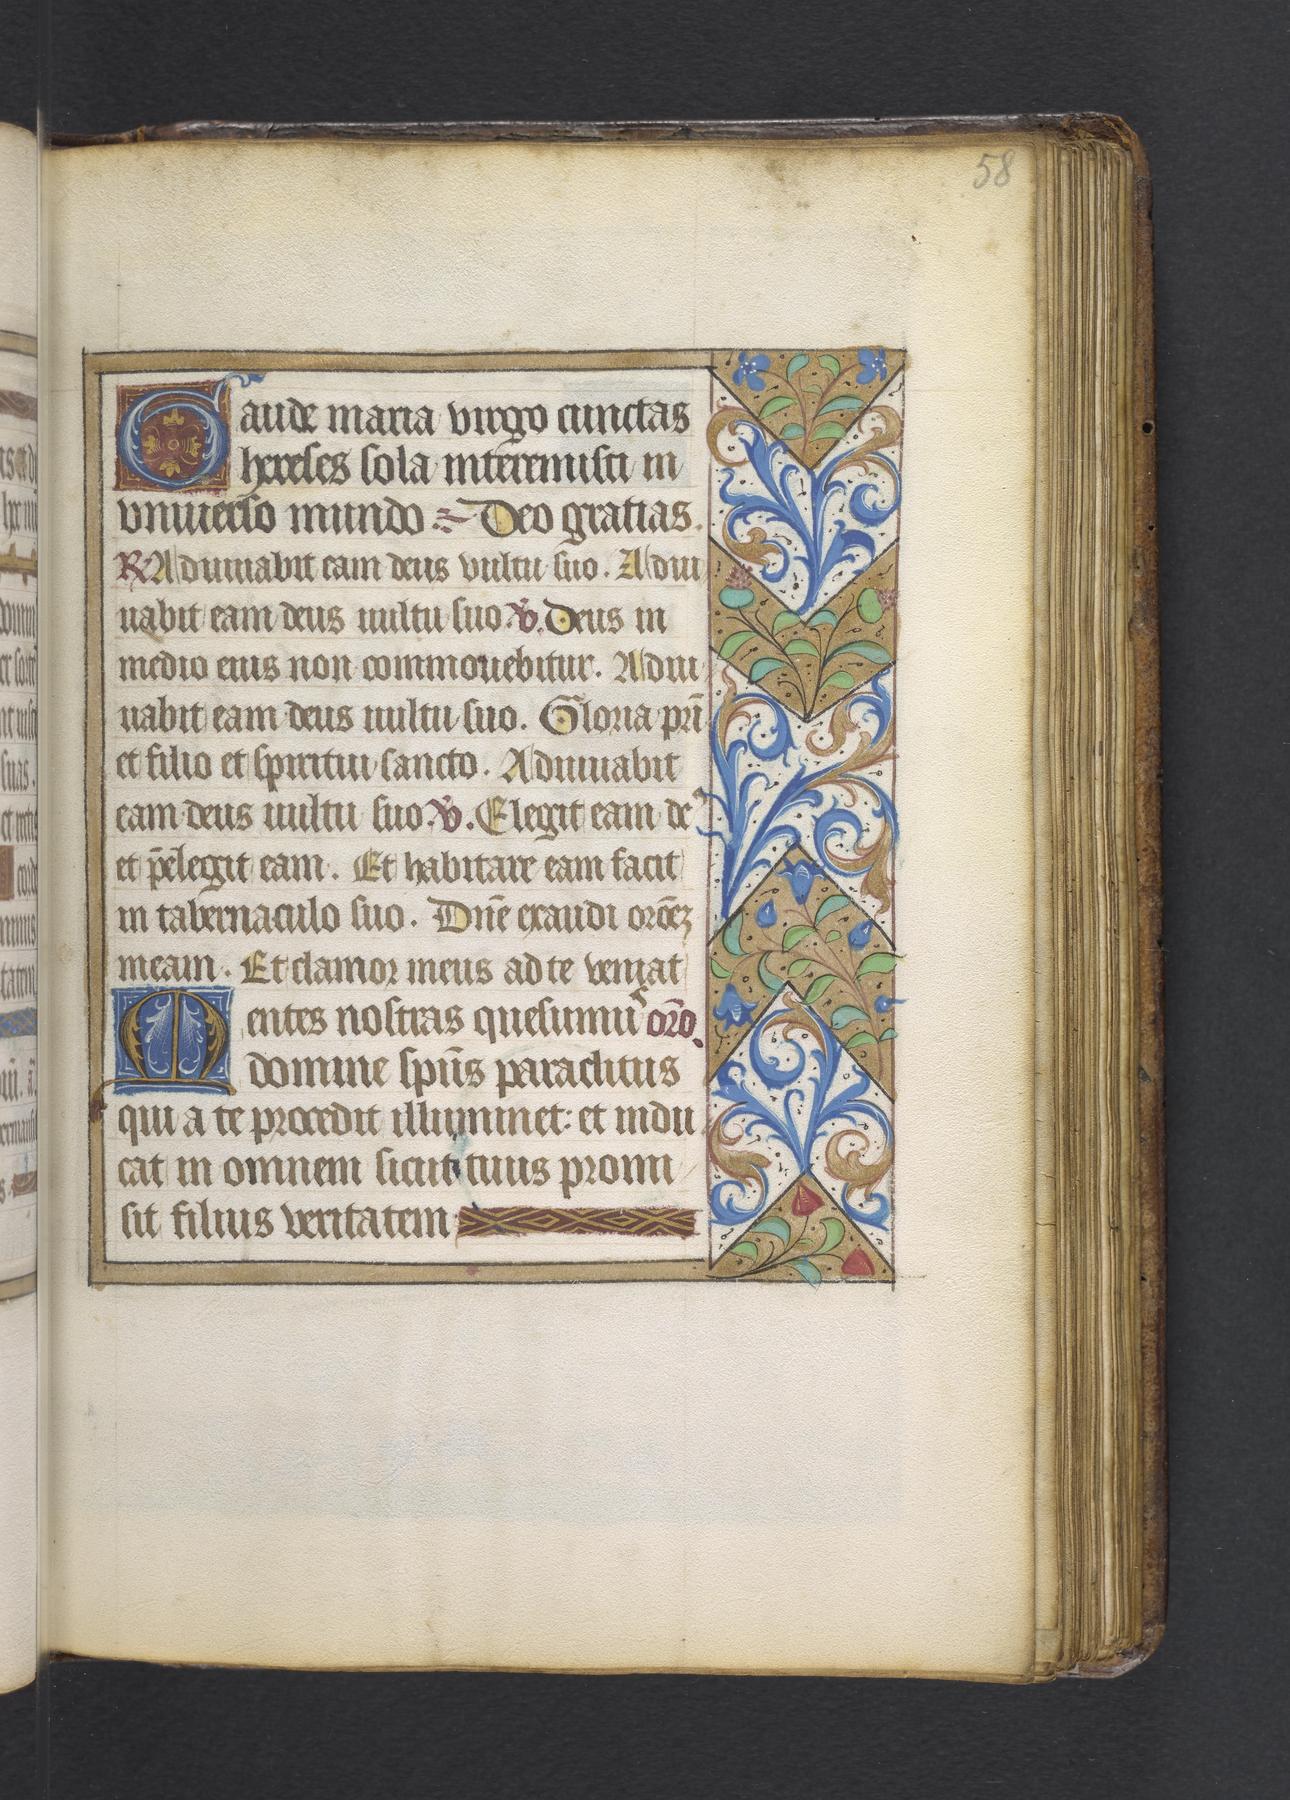 58
Gaude maria virgo cunctas
hereses sola interemisti in
vniuerso mundo Deo gratias.
R Adiuuabit eam deus vultu suo. Adiu
uabit eam deus uultu suo. v. Deus in
medio eius non commouebitur. Adiu
uabit eam deus uultu suo. Gloria pr̄i
et filio et spiritui sancto. Adiuuabit
eam deus uultu suo. v. Elegit eam de
et p̄elegit eam. Et habitare eam facit
in tabernaculo suo. Dn̄e exaudi or̄oēꝫ
meam. Et clamor meus ad te veniat
Mentes nostras quesumus or̄o.
domine sp̄us paraclitus
qui a te procedit illuminet: et indu
cat in omnem sicut tuus promi
sit filius veritatem